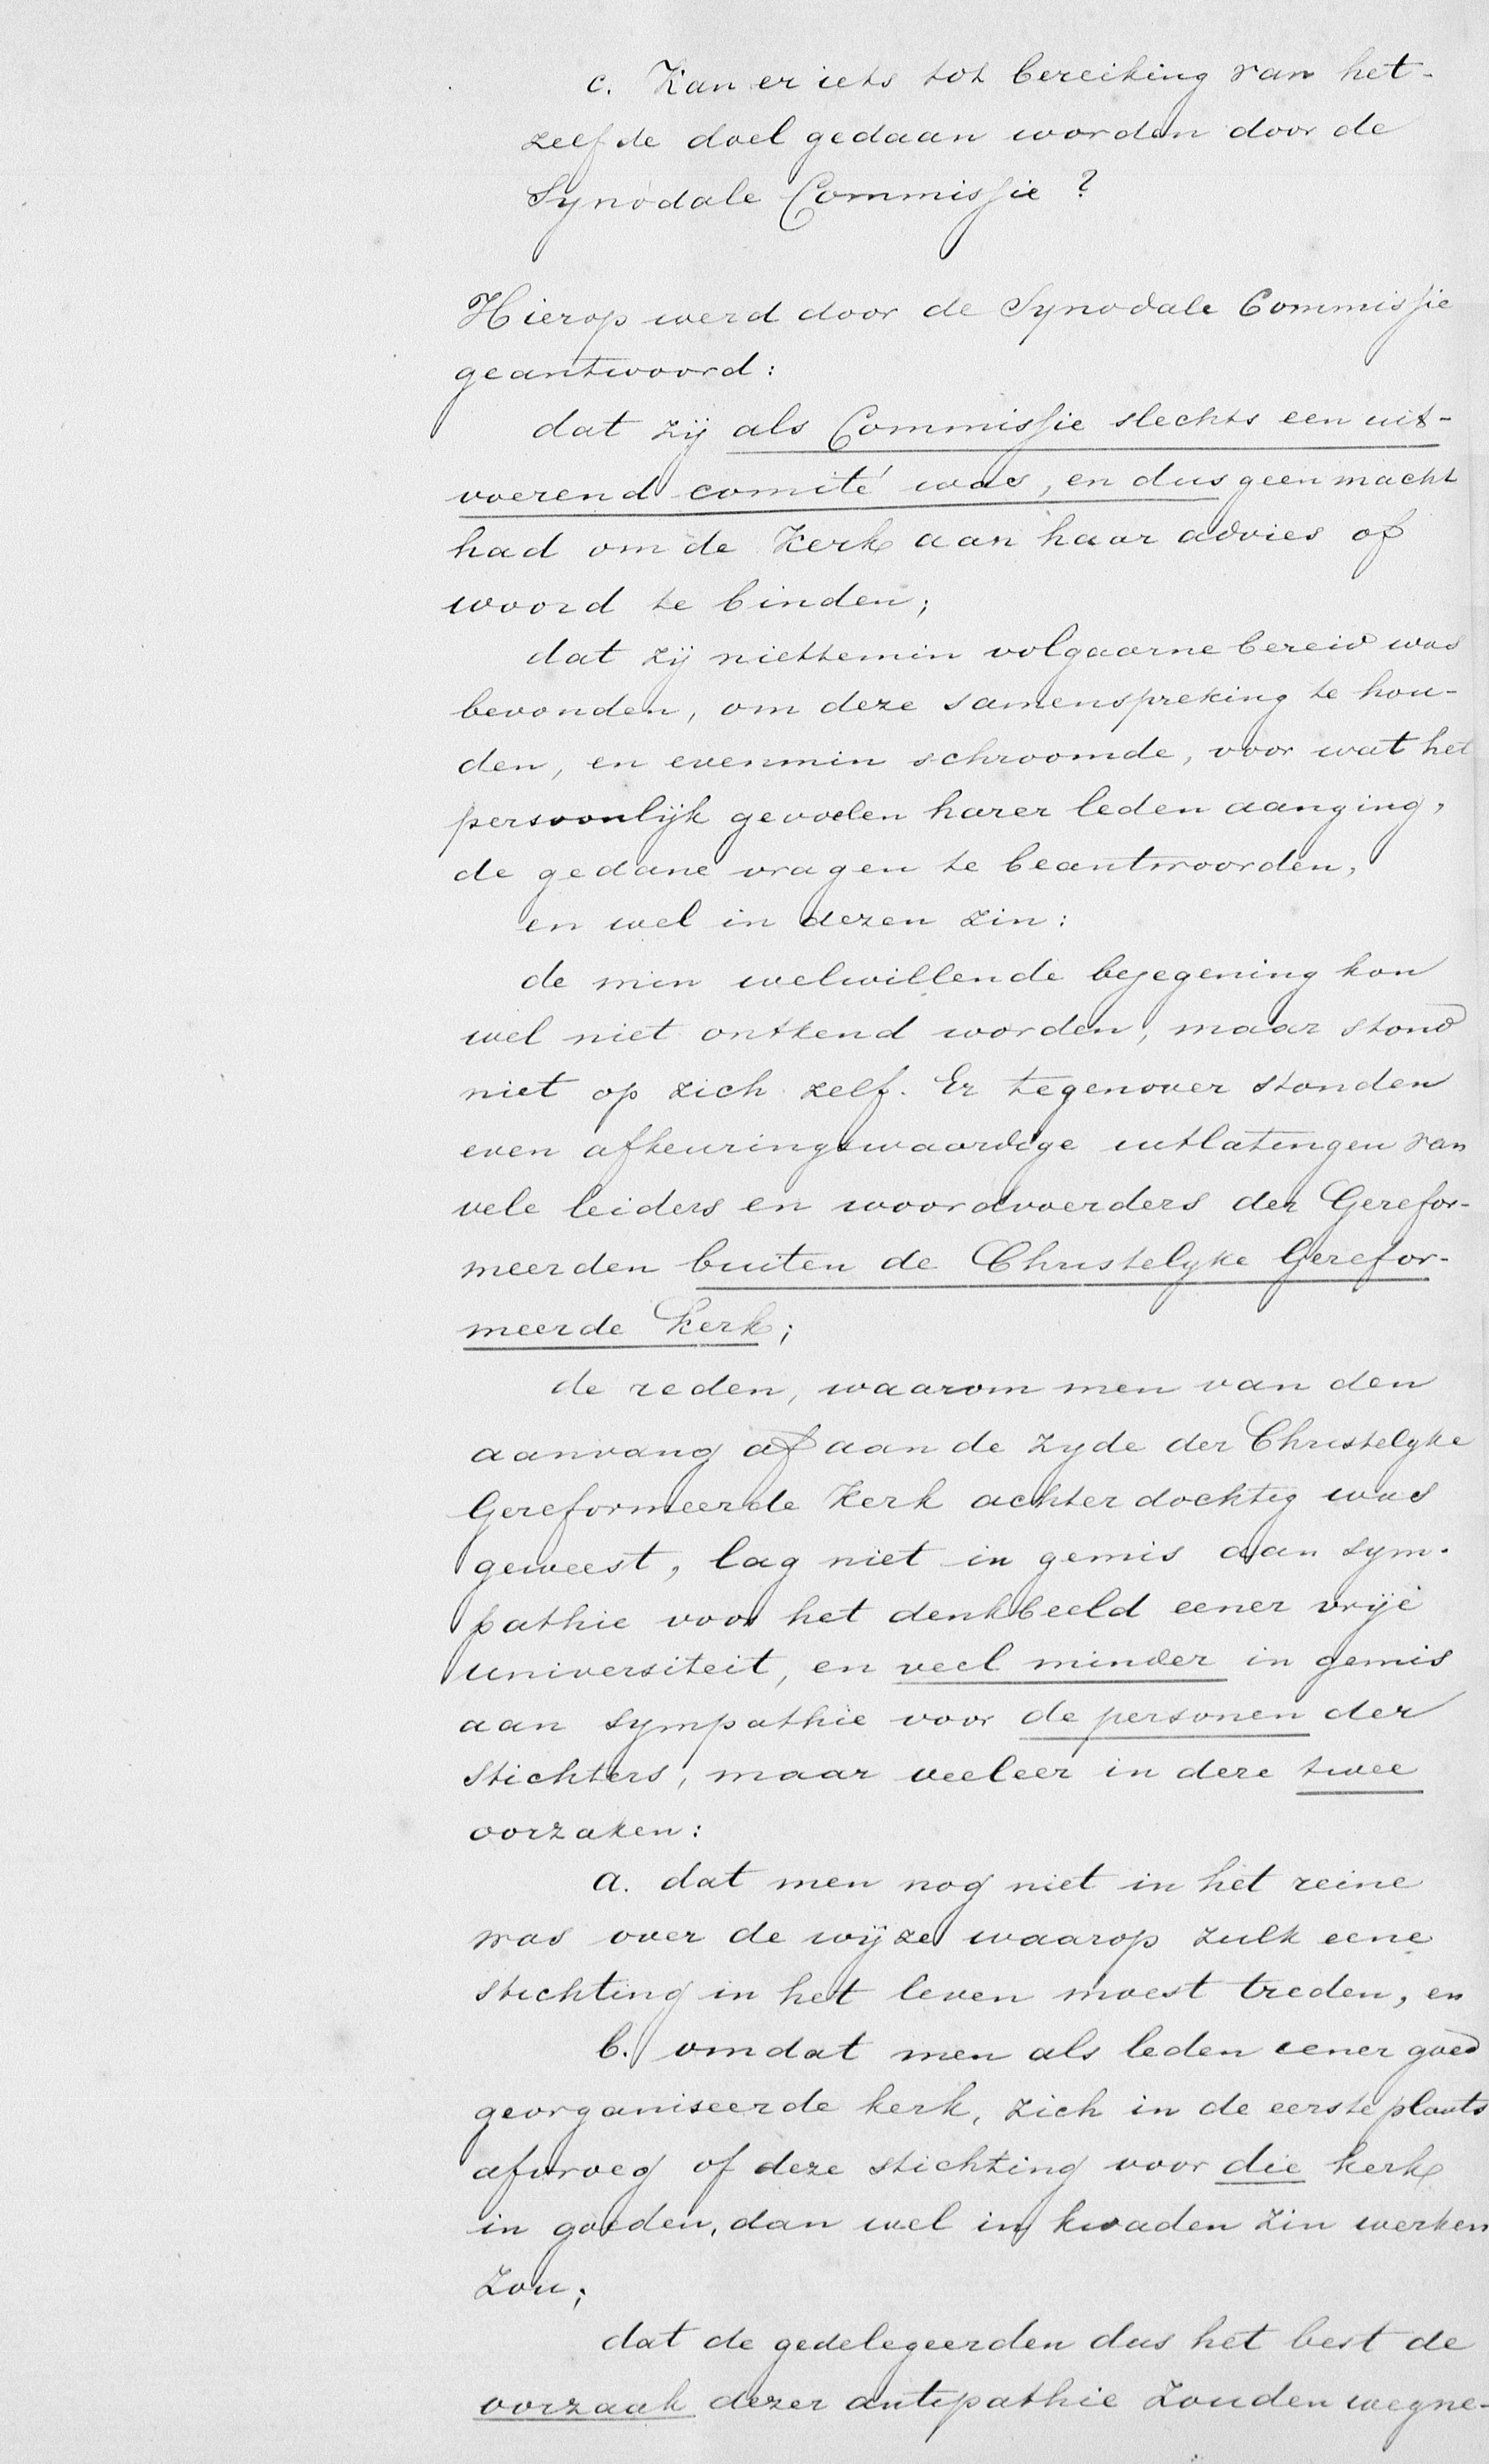 c. Kan er iets tot bereiking van het-
zelfde doel gedaan worden door de
Synodale Commissie?
Hierop werd door de Synodale Commissie
geantwoord:
dat zij als Commissie slechts een uit-
voerend comité was, en dus geen macht
had om de Kerk aan haar advies of
woord te binden;
dat zij niettemin volgaarne bereid was
bevonden, om deze samenspreking te hou-
den, en evenmin schroomde, voor wat het
persoonlijk gevoelen harer leden aanging,
de gedane vragen te beantwoorden,
en wel in dezen zin:
de min welwillende bejegening kon
wel niet ontkend worden, maar stond
niet op zich zelf. Er tegenover stonden
even afkeuringswaardige uitlatingen van
vele leiders en woordvoerders der Gerefor-
meerden buiten de Christelyke Gerefor-
meerde Kerk;
de reden, waarom men van den
aanvang af aan de zyde der Christelyke
Gereformeerde Kerk achterdochtig was
geweest, lag niet in gemis aan sym-
pathie voor het denkbeeld eener vrije
universiteit, en veel minder in gemis
aan sympathie voor de personen der
stichters, maar veeleer in deze twee
oorzaken:
a. dat men nog niet in het reine
was over de wijze waarop zulk eene
stichting in het leven moest treden, en
b. omdat men als leden eener goed
georganiseerde kerk, zich in de eerste plaats
afvroeg of deze stichting voor die kerk
in goeden, dan wel in kwaden zin werken
zou;
dat de gedelegeerden dus het best de
oorzaak dezer antipathie zouden wegne-